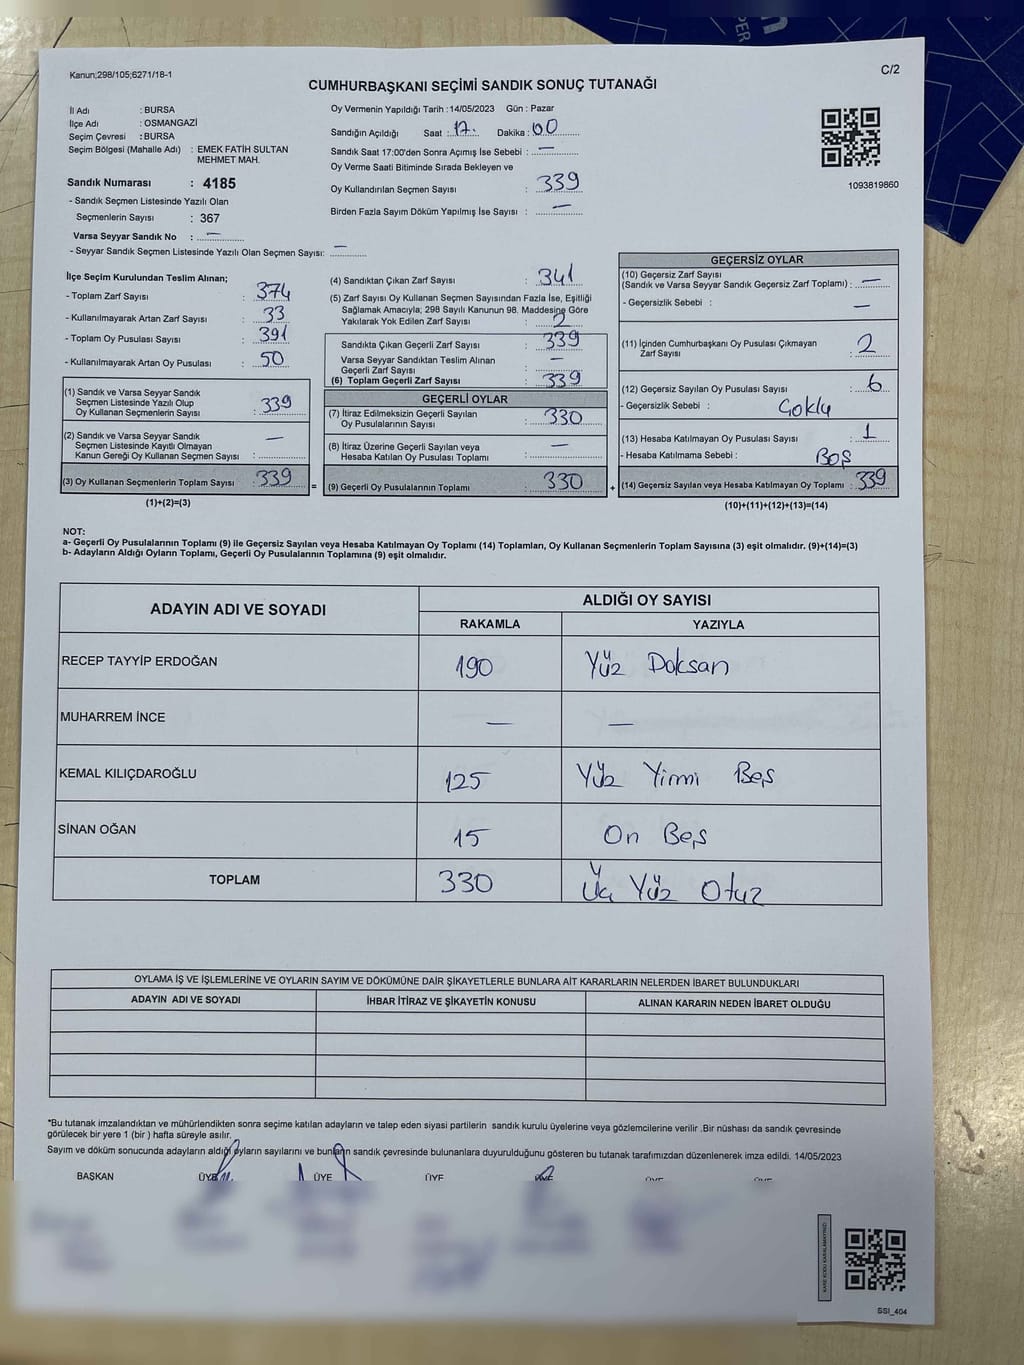 PER
Kanun;298/105;6271/18-1
C/2
CUMHURBAŞKANI SEÇİMİ SANDIK SONUÇ TUTANAĞI
İl Adı : BURSA
İlçe Adı : OSMANGAZİ
Seçim Çevresi : BURSA
Seçim Bölgesi (Mahalle Adı) : EMEK FATİH SULTAN
MEHMET MAH.
Sandık Numarası : 4185
- Sandık Seçmen Listesinde Yazılı Olan
Seçmenlerin Sayısı : 367
Varsa Seyyar Sandık No : —
- Seyyar Sandık Seçmen Listesinde Yazılı Olan Seçmen Sayısı: —
Oy Vermenin Yapıldığı Tarih : 14/05/2023 Gün : Pazar
Sandığın Açıldığı Saat : 17. Dakika : 00
Sandık Saat 17:00'den Sonra Açımış İse Sebebi : —
Oy Verme Saati Bitiminde Sırada Bekleyen ve
Oy Kullandırılan Seçmen Sayısı : 339
Birden Fazla Sayım Döküm Yapılmış İse Sayısı : —
1093819860
İlçe Seçim Kurulundan Teslim Alınan;
- Toplam Zarf Sayısı : 374
- Kullanılmayarak Artan Zarf Sayısı : 33
- Toplam Oy Pusulası Sayısı : 391
- Kullanılmayarak Artan Oy Pusulası : 50
(1) Sandık ve Varsa Seyyar Sandık
Seçmen Listesinde Yazılı Olup
Oy Kullanan Seçmenlerin Sayısı : 339
(2) Sandık ve Varsa Seyyar Sandık
Seçmen Listesinde Kayıtlı Olmayan
Kanun Gereği Oy Kullanan Seçmen Sayısı : —
(3) Oy Kullanan Seçmenlerin Toplam Sayısı : 339
(1)+(2)=(3)
(4) Sandıktan Çıkan Zarf Sayısı : 341
(5) Zarf Sayısı Oy Kullanan Seçmen Sayısından Fazla İse, Eşitliği
Sağlamak Amacıyla; 298 Sayılı Kanunun 98. Maddesine Göre
Yakılarak Yok Edilen Zarf Sayısı : 2
Sandıkta Çıkan Geçerli Zarf Sayısı : 339
Varsa Seyyar Sandıktan Teslim Alınan
Geçerli Zarf Sayısı : —
(6) Toplam Geçerli Zarf Sayısı : 339
GEÇERLİ OYLAR
(7) İtiraz Edilmeksizin Geçerli Sayılan
Oy Pusulalarının Sayısı : 330
(8) İtiraz Üzerine Geçerli Sayılan veya
Hesaba Katılan Oy Pusulası Toplamı : —
= (9) Geçerli Oy Pusulalarının Toplamı : 330 +
GEÇERSİZ OYLAR
(10) Geçersiz Zarf Sayısı
(Sandık ve Varsa Seyyar Sandık Geçersiz Zarf Toplamı) : —
- Geçersizlik Sebebi : —
(11) İçinden Cumhurbaşkanı Oy Pusulası Çıkmayan
Zarf Sayısı : 2
(12) Geçersiz Sayılan Oy Pusulası Sayısı : 6
- Geçersizlik Sebebi : Çoklu
(13) Hesaba Katılmayan Oy Pusulası Sayısı : 1
- Hesaba Katılmama Sebebi : BOŞ
(14) Geçersiz Sayılan veya Hesaba Katılmayan Oy Toplamı : 339
(10)+(11)+(12)+(13)=(14)
NOT:
a- Geçerli Oy Pusulalarının Toplamı (9) ile Geçersiz Sayılan veya Hesaba Katılmayan Oy Toplamı (14) Toplamları, Oy Kullanan Seçmenlerin Toplam Sayısına (3) eşit olmalıdır. (9)+(14)=(3)
b- Adayların Aldığı Oyların Toplamı, Geçerli Oy Pusulalarının Toplamına (9) eşit olmalıdır.
ADAYIN ADI VE SOYADI ALDIĞI OY SAYISI
RAKAMLA YAZIYLA
RECEP TAYYİP ERDOĞAN 190 Yüz Doksan
MUHARREM İNCE — —
KEMAL KILIÇDAROĞLU 125 Yüz Yirmi Beş
SİNAN OĞAN 15 On Beş
TOPLAM 330 Üç Yüz Otuz
OYLAMA İŞ VE İŞLEMLERİNE VE OYLARIN SAYIM VE DÖKÜMÜNE DAİR ŞİKAYETLERLE BUNLARA AİT KARARLARIN NELERDEN İBARET BULUNDUKLARI
ADAYIN ADI VE SOYADI İHBAR İTİRAZ VE ŞİKAYETİN KONUSU ALINAN KARARIN NEDEN İBARET OLDUĞU
*Bu tutanak imzalandıktan ve mühürlendikten sonra seçime katılan adayların ve talep eden siyasi partilerin sandık kurulu üyelerine veya gözlemcilerine verilir .Bir nüshası da sandık çevresinde
görülecek bir yere 1 (bir ) hafta süreyle asılır.
Sayım ve döküm sonucunda adayların aldığı oyların sayılarını ve bunların sandık çevresinde bulunanlara duyurulduğunu gösteren bu tutanak tarafımızdan düzenlenerek imza edildi. 14/05/2023
BAŞKAN ÜYE ÜYE ÜYE ÜYE ÜYE ÜYE
KARE KODU KARALAMAYINIZ!
SSI_404